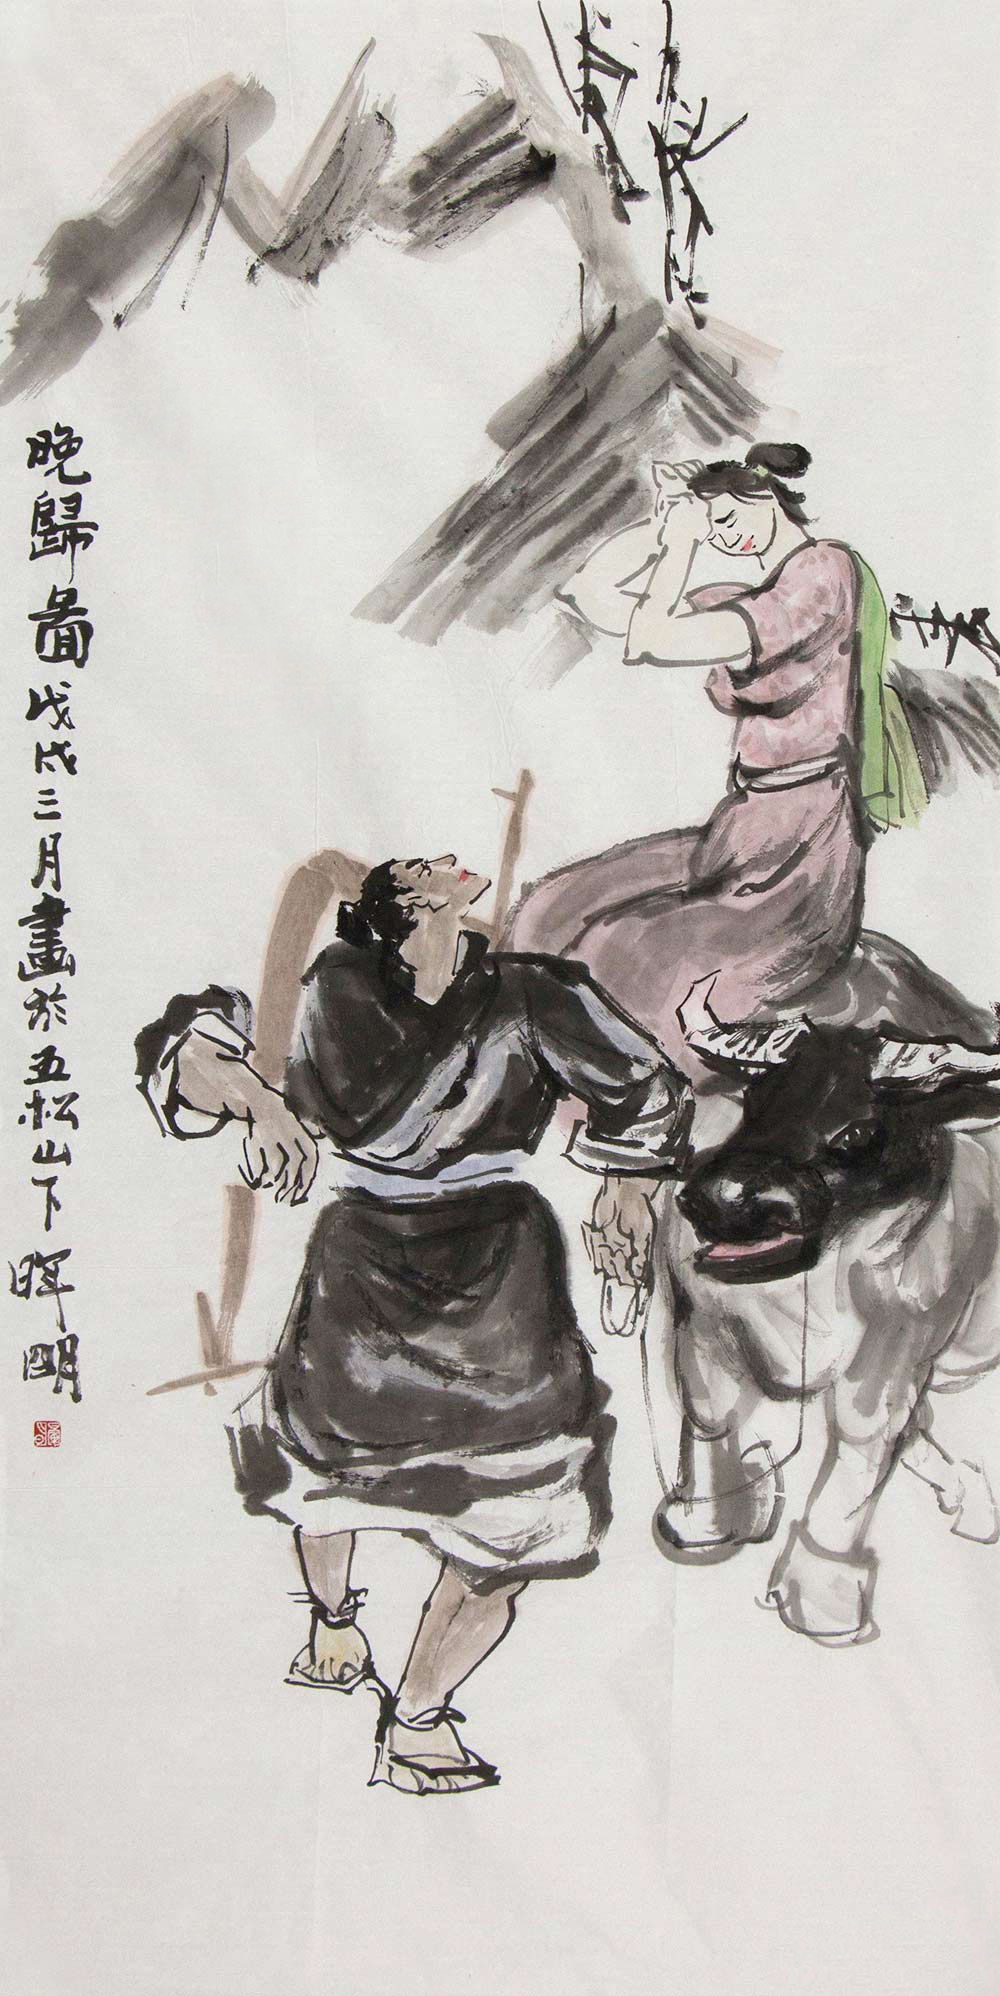 晚歸圖 戊戌三月畫於五松山下 晖明